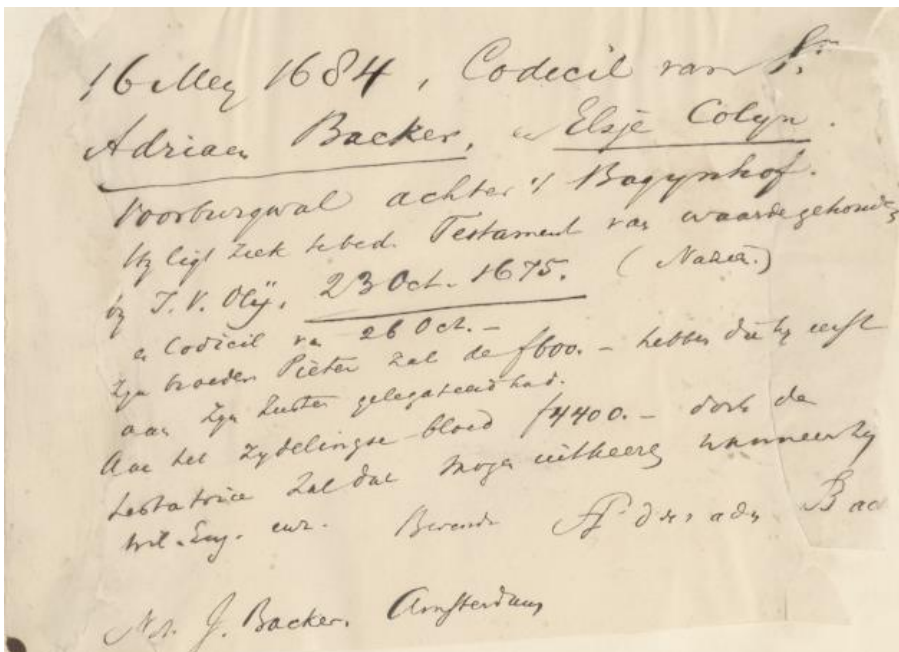 16 Mey 1684, Codicil van Sr.
Adriaen Backer, en Elsje Colyn.
Voorburgwal achter 't Bagynhof.
Hy ligt ziek te bed. Testament van waarde gehouden
by J. V. Olÿ, 23 Oct. 1675. (Nazien.)
en Codicil van 26 Oct. –
Zyn broeder Pieter zal de f600. – hebben die hy eerst
aan zyn zuster gelegateerd had.
Aan het zydelingse bloed f4400. – doch de
testatrice zal dat mogen uitkeeren wanneer zy
wil. Enz. enz.
Adriaen Bac
Not. J. Backer. Amsterdam